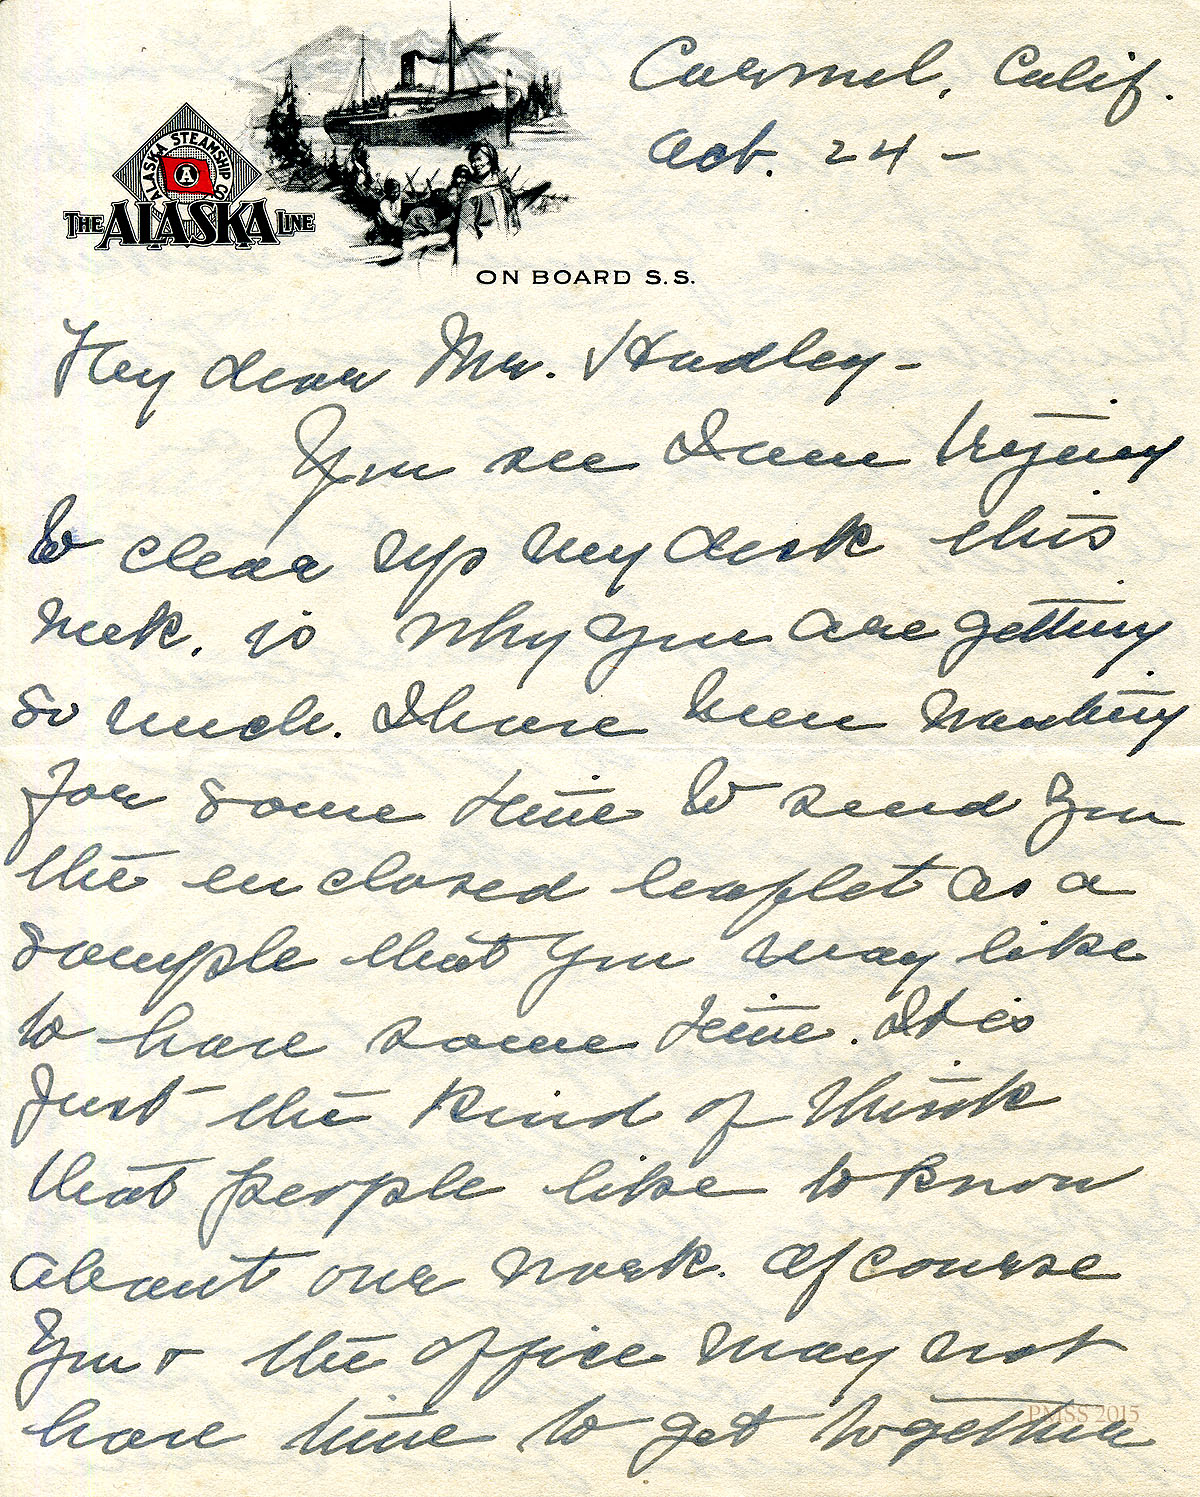 ALASKA STEAMSHIP CO.
A
THE ALASKA LINE
Carmel, Calif.
Oct. 24 –
ON BOARD S.S.
My dear Mr. Hadley –
You see I am trying
to clear up my desk this
week, is why you are getting
so much. I have been wanting
for some time to send you
the enclosed leaflet as a
sample that you may like
to have some time. It is
just the kind of think
that people like to know
about our work. Of course
you + the office may not
have time to get together
PMSS 2015